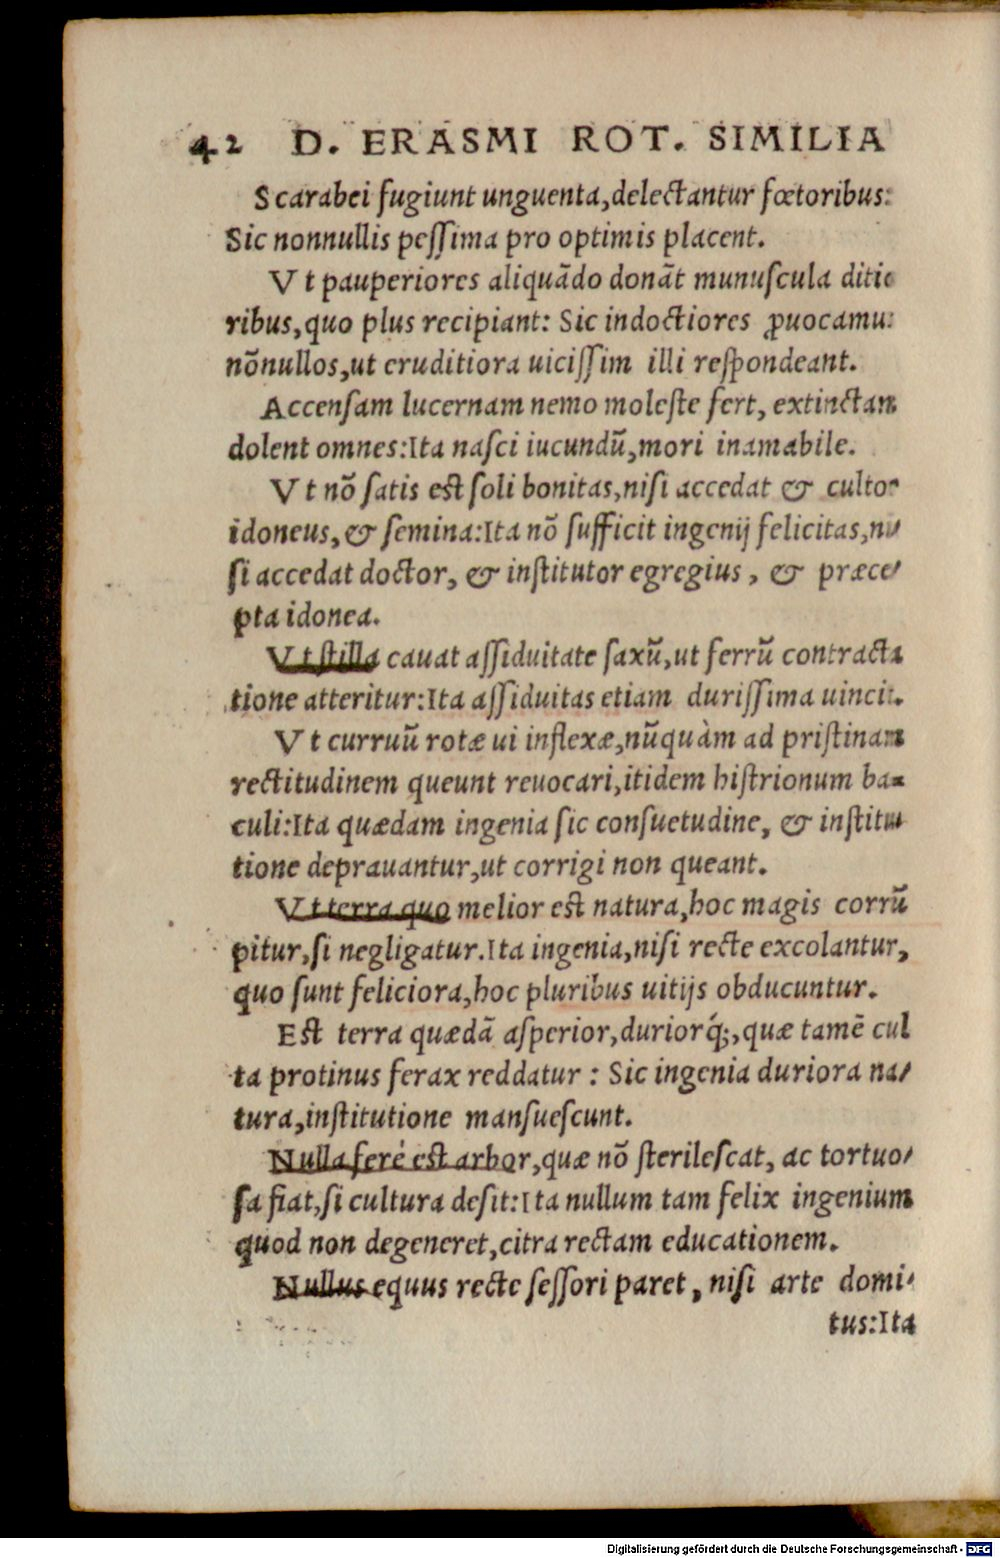 42 D. ERASMI ROT. SIMILIA
Scarabei fugiunt unguenta,delectantur fœtoribus:
Sic nonnullis peſſima pro optimis placent.
Vt pauperiores aliquãdo donãt munuſcula ditio
ribus,quo plus recipiant: Sic indoctiores ꝓuocamus
nõnullos,ut eruditiora uiciſſim illi reſpondeant.
Accenſam lucernam nemo moleſte fert, extinctam
dolent omnes:Ita naſci iucundũ,mori inamabile.
Vt nõ ſatis eſt ſoli bonitas,niſi accedat & cultor
idoneus, & ſemina:Ita nõ ſufficit ingenij felicitas,ni/
ſi accedat doctor, & inſtitutor egregius, & præce/
pta idonea.
Vt ſtilla cauat aſſiduitate ſaxũ,ut ferrũ contracta
tione atteritur:Ita aſſiduitas etiam duriſſima uincit.
Vt curruũ rotæ ui inflexæ,nũquàm ad priſtinam
rectitudinem queunt reuocari,itidem hiſtrionum ba=
culi:Ita quædam ingenia ſic conſuetudine, & inſtitu
tione deprauantur,ut corrigi non queant.
Vt terra quo melior eſt natura,hoc magis corrũ
pitur,ſi negligatur.Ita ingenia,niſi recte excolantur,
quo ſunt feliciora,hoc pluribus uitijs obducuntur.
Eſt terra quædã aſperior,duriorq́;,quæ tamẽ cul
ta protinus ferax reddatur : Sic ingenia duriora na/
tura,inſtitutione manſueſcunt.
Nulla feré eſt arbor,quæ nõ ſterileſcat, ac tortuo/
ſa fiat,ſi cultura deſit:Ita nullum tam felix ingenium
quod non degeneret,citra rectam educationem.
Nullus equus recte ſeſſori paret, niſi arte domi/
tus:Ita
Digitalisierung gefördert durch die Deutsche Forschungsgemeinschaft - DFG